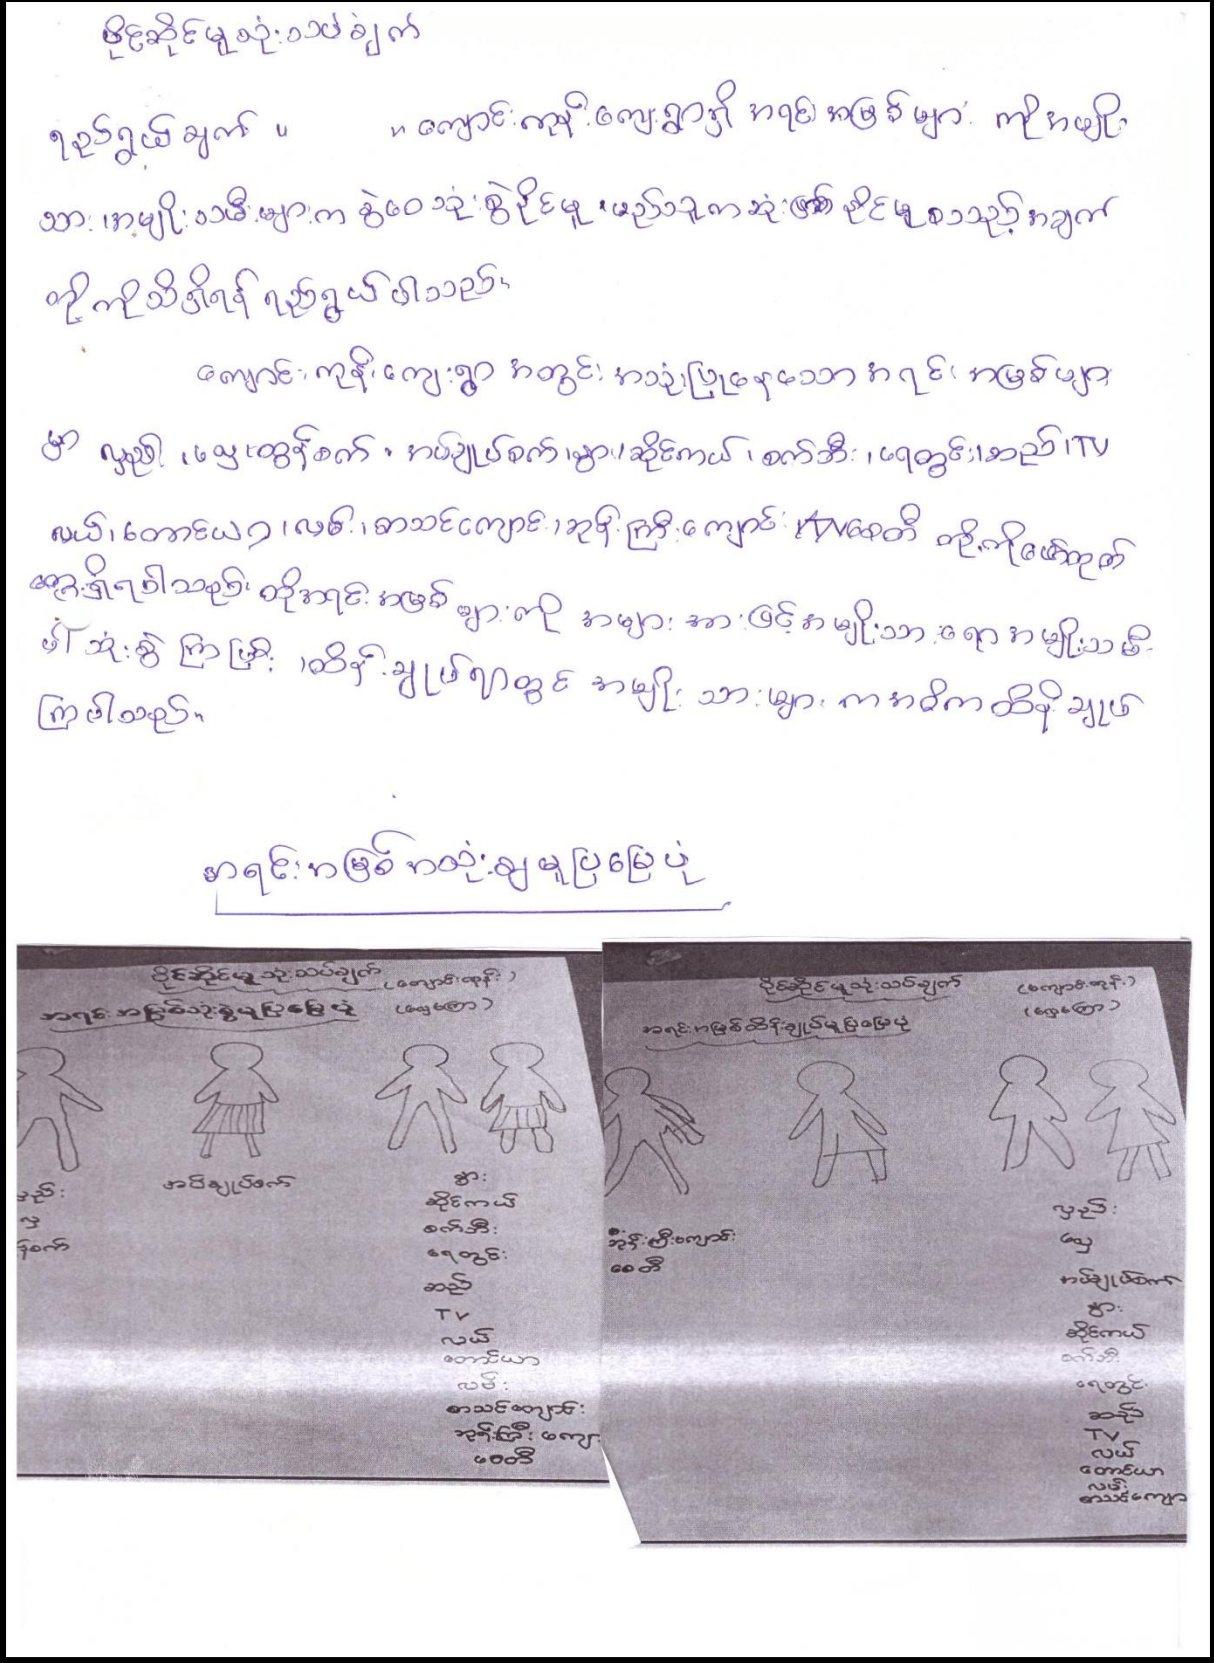 ပိုင်ဆိုင်မှုသုံးသပ်ချက်
ရည်ရွယ်ချက် ။ ။ ကျောင်းကုန်းကျေးရွာရှိ အရင်းအမြစ်များ ကို အမျိုး
သား ၊အမျိုးသမီးများက ခွဲဝေသုံးစွဲနိုင်မှု ၊မည်သူကဆုံးဖြတ်နိုင်မှု စသည့်အချက်
တို့ကိုသိရှိရန် ရည်ရွယ်ပါသည်။
ကျောင်းကုန်းကျေးရွာ အတွင်း အသုံးပြုနေသော အရင်းအမြစ်များ
မှာ လှည်း ၊လှေ ၊ထွန်စက် ၊ အပ်ချုပ်စက် ၊နွား ၊ဆိုင်ကယ် ၊စက်ဘီး ၊ရေတွင်း၊ဆည်၊TV
လယ်၊တောင်ယာ ၊လမ်း ၊စာသင်ကျောင်း ၊ဘုန်းကြီးကျောင်း စေတီ တို့ကိုဖော်ထုတ်
တွေ့ရှိရပါသည်။ ထိုအရင်းအမြစ်များကို အများအားဖြင့်အမျိုးသားရောအမျိုးသမီး
ပါ သုံးစွဲကြပြီး ၊ထိန်းချုပ်ရာတွင် အမျိုးသားများကအဓိကထိန်းချုပ်
ကြပါသည်။
အရင်းအမြစ်အသုံးချမှုပြမြေပုံ
ပိုင်ဆိုင်မှုသုံးသပ်ချက် (ကျောင်းကုန်း)
အရင်းအမြစ်သုံးစွဲမှုပြမြေပုံ
အပ်ချုပ်စက်
နွား
ဆိုင်ကယ်
စက်ဘီး
ရေတွင်း
ဆည်
TV
လယ်
တောင်ယာ
လမ်း
စာသင်ကျောင်း
ဘုန်းကြီးကျော
စေတီ
ပိုင်ဆိုင်မှုသုံးသပ်ချက် (ကျောင်းကုန်း)
အရင်းအမြစ်ထိန်းချုပ်မှုပြမြေပုံ
ဘုန်းကြီးကျောင်း
စေတီ
လှည်း
လှေ
အပ်ချုပ်စက်
နွား
ဆိုင်ကယ်
စက်ဘီး
ရေတွင်း
ဆည်
TV
လယ်
တောင်ယာ
လမ်း
စာသင်ကျော